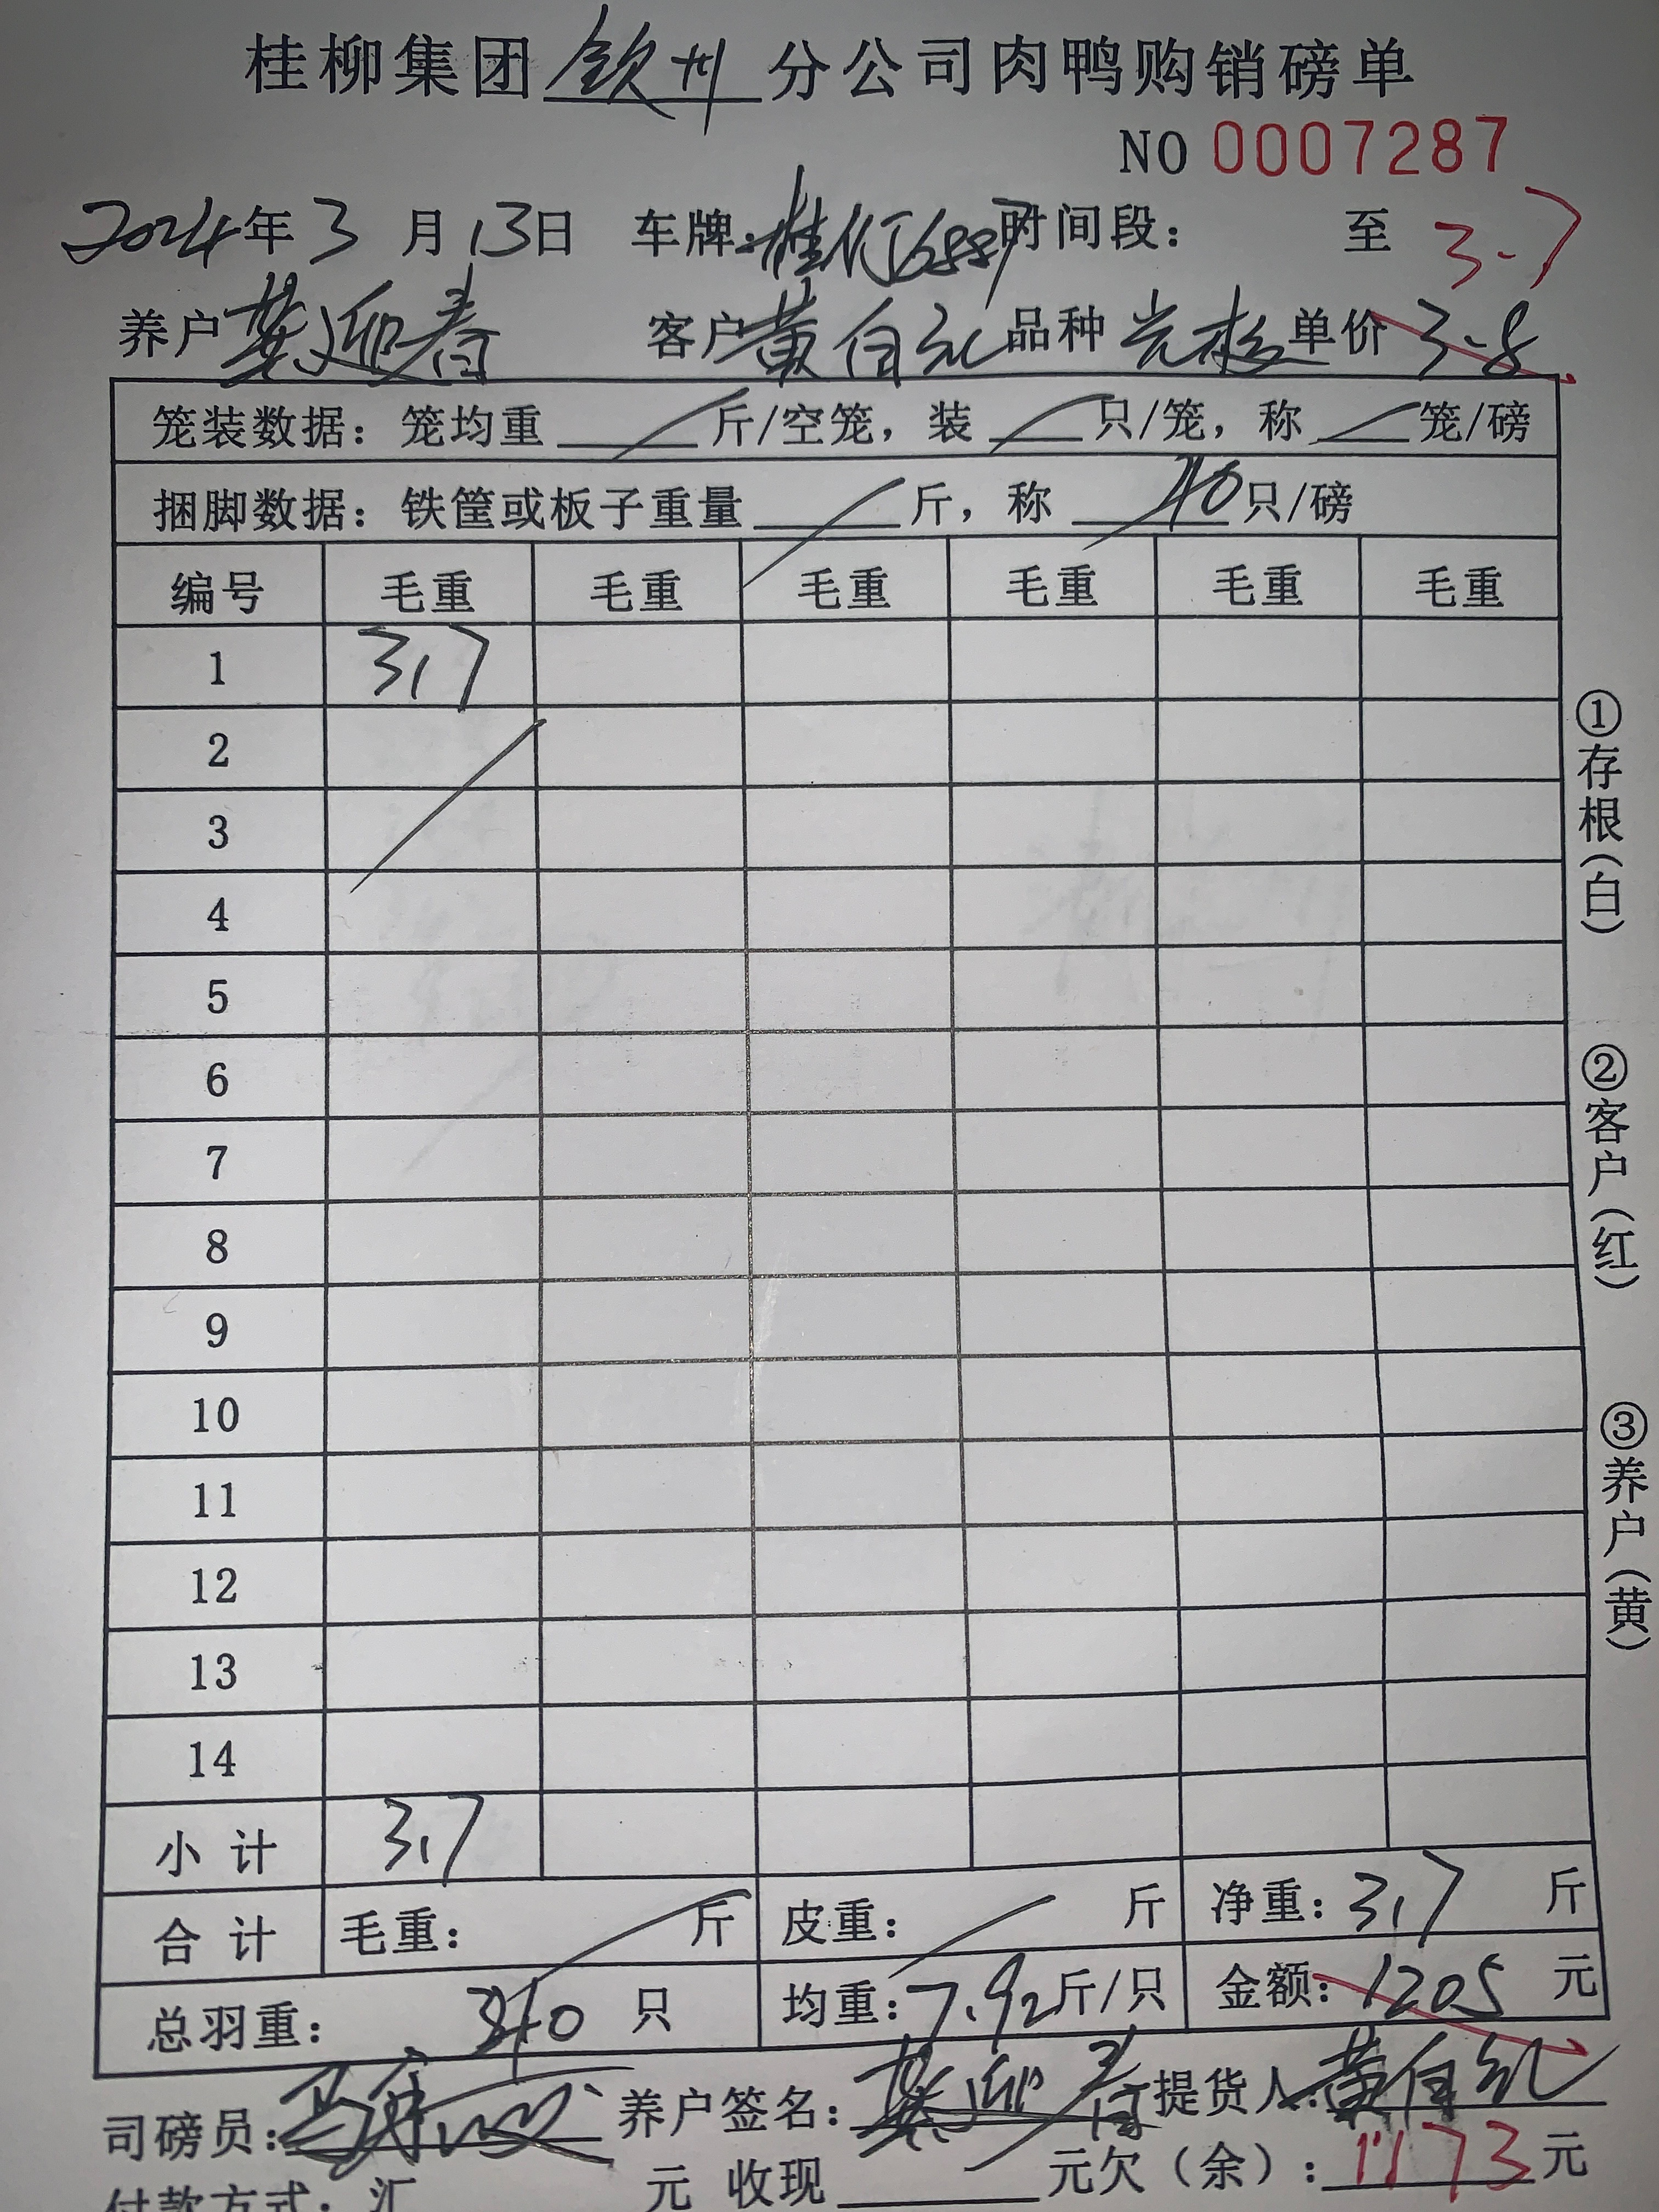 桂柳集团钦州分公司肉鸭购销磅单
NO 0007287
2024年3月13日 车牌: 时间段: 至 3-7
养户 迎春 客户黄 品种 单价 3-8
笼装数据: 笼均重 斤/空笼, 装 只/笼, 称 笼/磅
捆脚数据: 铁筐或板子重量 斤, 称 40只/磅
编号 毛重 毛重 毛重 毛重 毛重 毛重
1 317
2
3
4
5
6
7
8
9
10
11
12
13
14
小计 317
合计 毛重: 斤 皮重: 斤 净重: 317 斤
总羽重: 只 均重: 7.92斤/只 金额: 1205 元
司磅员: 养户签名: 迎春 提货人: 黄
付款方式: 汇 元 收现 元欠(余): 1173元
①存根(白)
②客户(红)
③养户(黄)